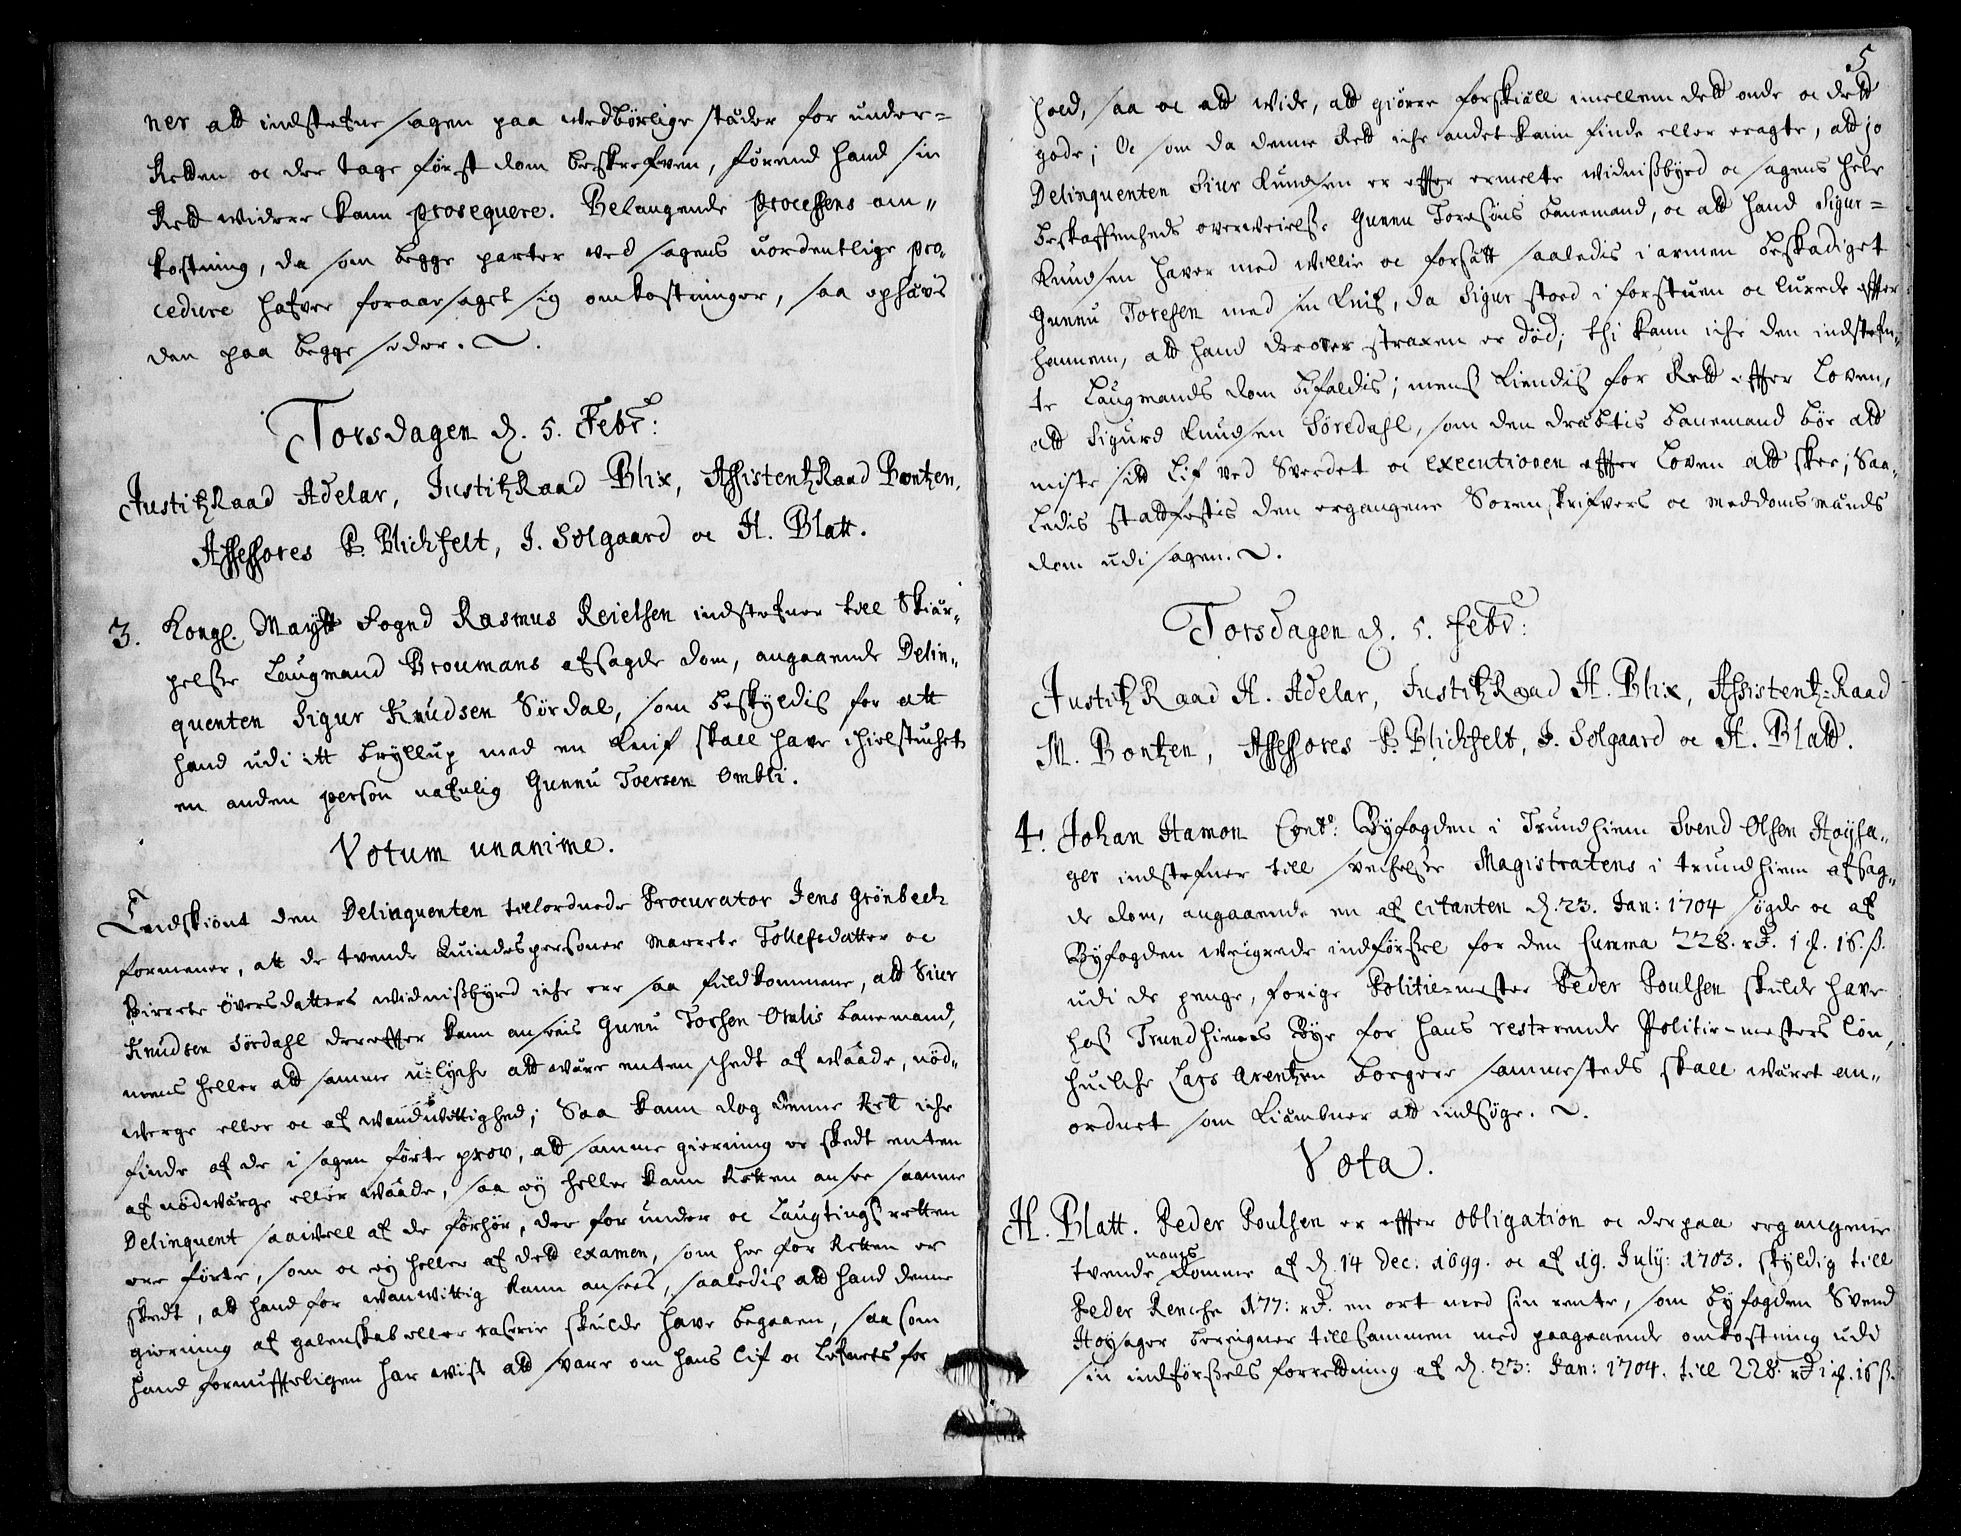 ner att indstefne sagen paa wedbørlige stæder for under=
Retten oc der tage først dom beskrefven, førend hand sin
Rett widere kann prosequere. Belangende Processens om,,
kostning, da som begge parter wed sagens uordentlige pro,,
cedure hafver foraarsaget sig omkostninger, saa ophævis
den paa begge sider.
Torsdagen d. 5. Febr:
JustitzRaad Adelar, JustitzRaad Blix, AssistentzRaad Bontzen,
Assessores P. Blichfelt, J. Solgaard oc H. Blatt.
3. Kongl. Maytt Fogd Rasmus Reielsen indstefner till Skiær,,
pelsse Laugmand Broumans afsagde dom, angaaende Delin,,
quenten Sigur Knudsen Sørdal, som beskyldis for att
hand udi itt bryllup med en Knif skall have ihielstuchet
en anden person nafnlig Gunnu Toersen Ombli.
Votum unanime.
Endskiønt den Delinquenten tillordnede Procurator Jens Grønbech
formener, att de tvende Quindespersoner Marrete Tollefsdatter oc
Birrete Øversdatters widnissbyrd iche ere saa fuldkommene, att Siur
Knudsen Sørdahl derefter kann ansees Gunu Torsen Omlis banemand,
mens heller att samme u-lyche att wære enten schedt af waade, nød,,
werge eller oc af wanduvittighed; Saa kann dog denne Rett iche
finde af de i sagen førte prov, att samme gierning er skedt enten
af nødwærge eller waade, saa oy heller kann Retten ansee samme
Delinquent saawell af de forhør, der for under oc Laugtings retten
ere førte, som oc oy heller af dett examen, som her for Retten er
skedt, att hand for wanwittig kann ansees, saaledis att hand denne
gierning af galenskab eller raserie skulde have begaaen, saa som
hand fornufteligen har wist att svare om hans lif oc lefnets for
5
hold, saa oc att wide, att giøre forskiæll imellem dett onde oc dett
gode; Oc som da denne Rett iche andet kann finde eller eragte, att jo
Delinquenten Siur Knudsen er efter ermelte widnissbyrd oc sagens hele
beskaffenheds overweielsse Gunnu Toresøns banemand, oc att hand Sigur=
Knudsen haver med willie oc forsætt saaledis i armen beskadiget
Gunnu Toresen med sin Knif, da Sigur stoed i forstuen oc lurede efter
hannem, att hand derover straxen er død; thi kann iche den indstefn,,
te Laugmands dom bifaldis; menss kiendis for Rett efter Loven,
att Sigurd Knudsen Søredahl, som den dræbtis banemand bør att
miste sitt lif ved Sverdet oc executionen efter loven att skee; Saa,,
ledis stadfestis den ergangene Sorenskrifvers oc meddoms mænds
dom udi sagen.
Torsdagen d. 5. Febr:
JustitzRaad H. Adelar, JustitzRaad H. Blix, Assistentz=Raad
M. Bontzen, Assessores P. Blichfelt, J. Solgaard oc H. Blatt.
4. Johan Hamon Cont: Byfogden i Trundhiem Svend Olsen Høysa,,
ger indstefner till svechelsse Magistratens i trundhiem afsag,,
de dom, angaaende en af Citanten d. 23. Jan: 1704 søgde oc af
Byfogden weigrede indførssel for den Summa 228. rd. 1 ort. 16. ss.
udi de penge, forige Politie=mester Peder Poulsen skulde have
hoss Trundhiems Bye for hans resterende Politie=mesters løn,
huilche Lars Arentzen borgere sammesteds skall wæret an,,
ordnet som Kiæmbner att indsøge.
Vota.
H. Blatt. Peder Poulsen er efter obligation oc derpaa ergangene
tvende nams Domme af d. 14 Dec: 1699. oc af 19. July: 1703. skyldig till
Peder Renche 177: rd. en ort med sin rente, som byfogden Svend
Høysager beregner till sammen med paagaaende omkostning udi
sin indførssels forrettning af d. 23: Jan: 1704. till 228. rd 1 ort. 16 ss.